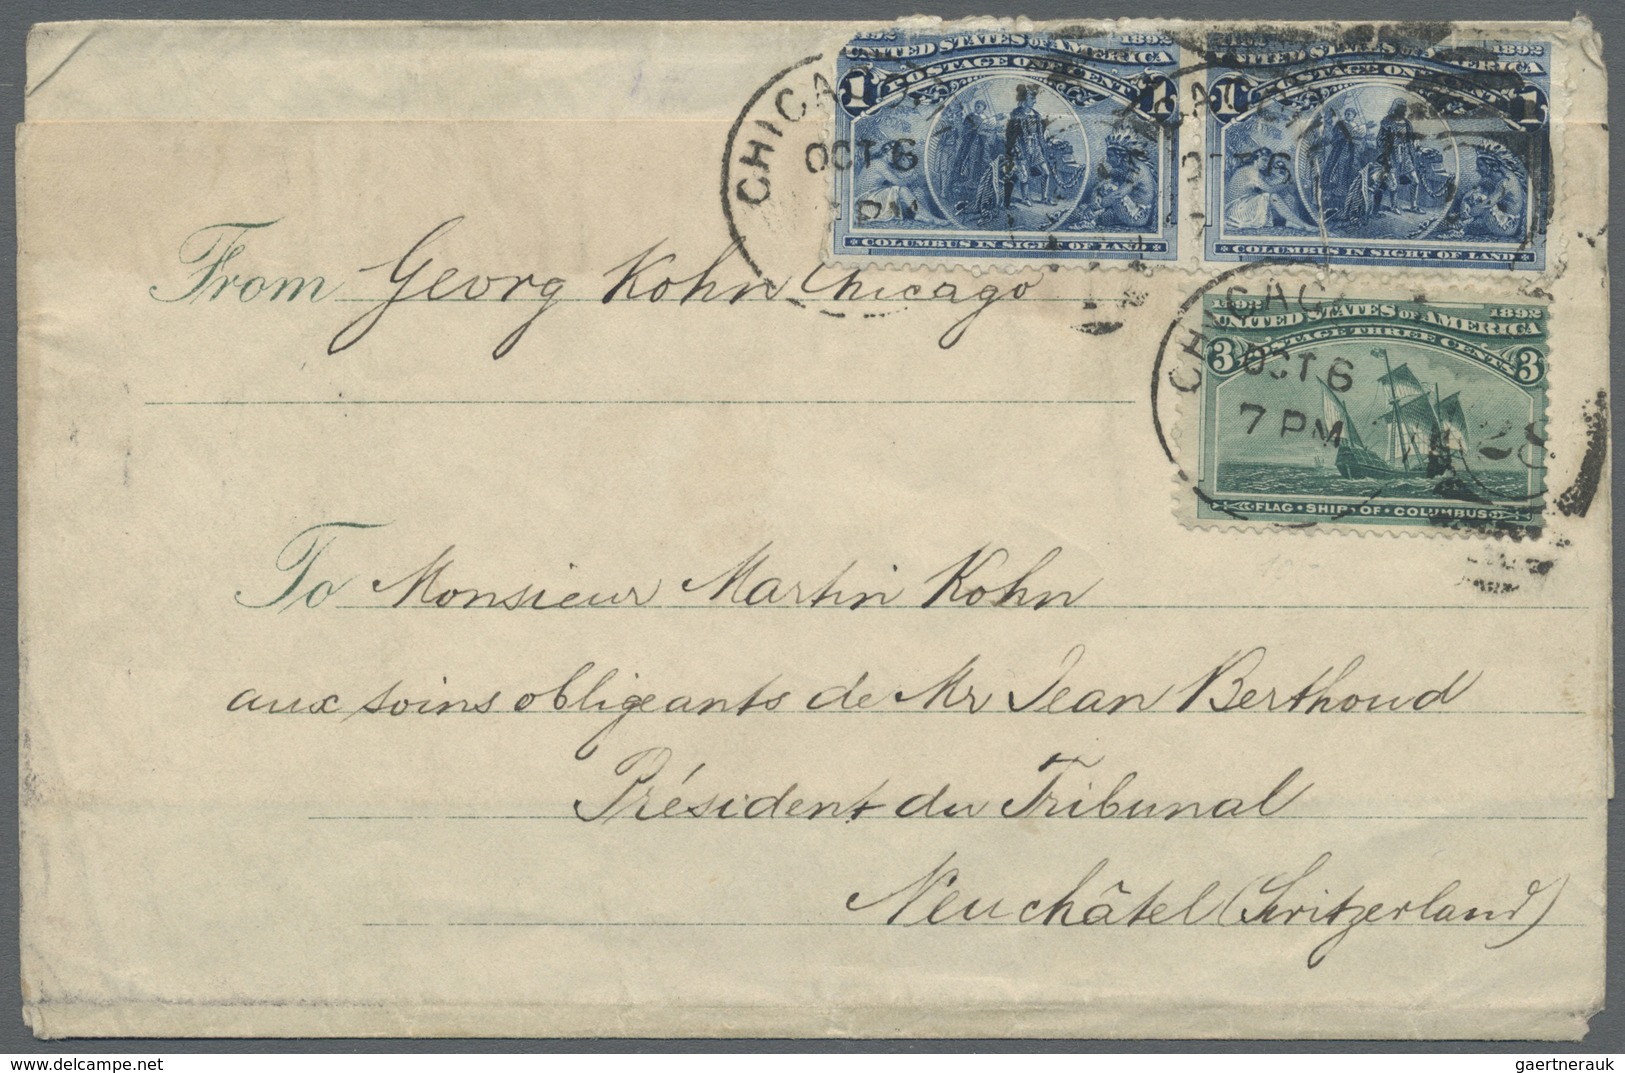 1892 1892 1892
UNITED STATES OF AMERICA UNITED STATES OF AMERICA
1 POSTAGE ONE CENT 1 1 POSTAGE ONE CENT 1
CHICA
OCT 6
PM
COLUMBUS IN SIGHT OF LAND COLUMBUS IN SIGHT OF LAND
From Georg Kohn Chicago
1892 1892
UNITED STATES OF AMERICA
POSTAGE THREE CENTS
3 3
CHICAG
OCT 6
7 PM
28
FLAG · SHIP · OF · COLUMBUS
To Monsieur Martin Kohn
aux soins obligeants de Mr Jean Berthoud
Président du Tribunal
Neuchâtel (Switzerland)
www.delcampe.net
gaertnerauk